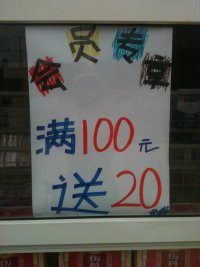 会员专享
满100元
送20